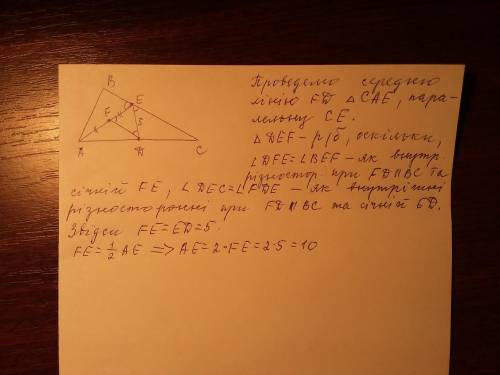 Проведемо середню
лінію FD △CAE, пара-
лельну CE.
△DEF - р/б, оскільки,
∠DFE=∠BEF - як внутр
різностор при FD∥BC та
січній FE, ∠DEC=∠FDE - як внутрішні
різносторонні при FD∥BC та січній ED.
Звідси FE=ED=5.
FE=1/2 AE => AE=2·FE=2·5=10
B
F
E
5
A
D
C